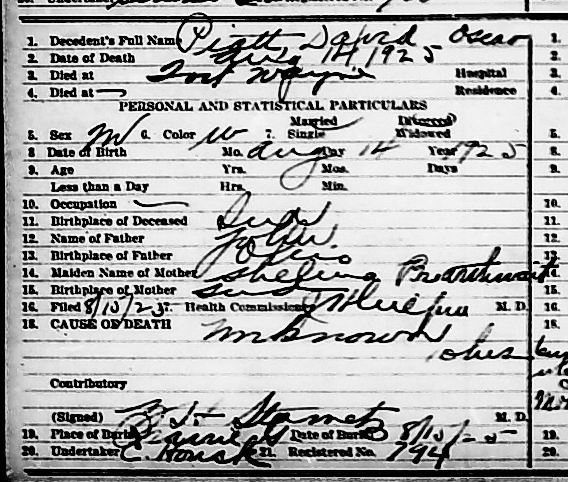 1. Decedent's Full Name Piatt David Oscar 1.
2. Date of Death Aug 14 1925 2.
3. Died at Fort Wayne Hospital 3.
4. Died at — Residence 4.
PERSONAL AND STATISTICAL PARTICULARS
Married Divorced
5. Sex M 6. Color W 7. Single Widowed 5.
8 Date of Birth Mo. Aug Day 14 Year 1925 8.
9. Age Yrs. Mos. Days 9.
Less than a Day Hrs. Min.
10. Occupation — 10.
11. Birthplace of Deceased Ind 11.
12. Name of Father John 12.
13. Birthplace of Father Ohio 13.
14. Maiden Name of Mother 14.
15. Birthplace of Mother Ind 15.
16. Filed 8/15/25 17. Health Commissioner M. D. 16.
18. CAUSE OF DEATH Unknown 18.
Contributory
(Signed) M. D.
19. Place of Burial Date of Burial 8/15/25 19.
20. Undertaker C. 21. Registered No. 794 20.